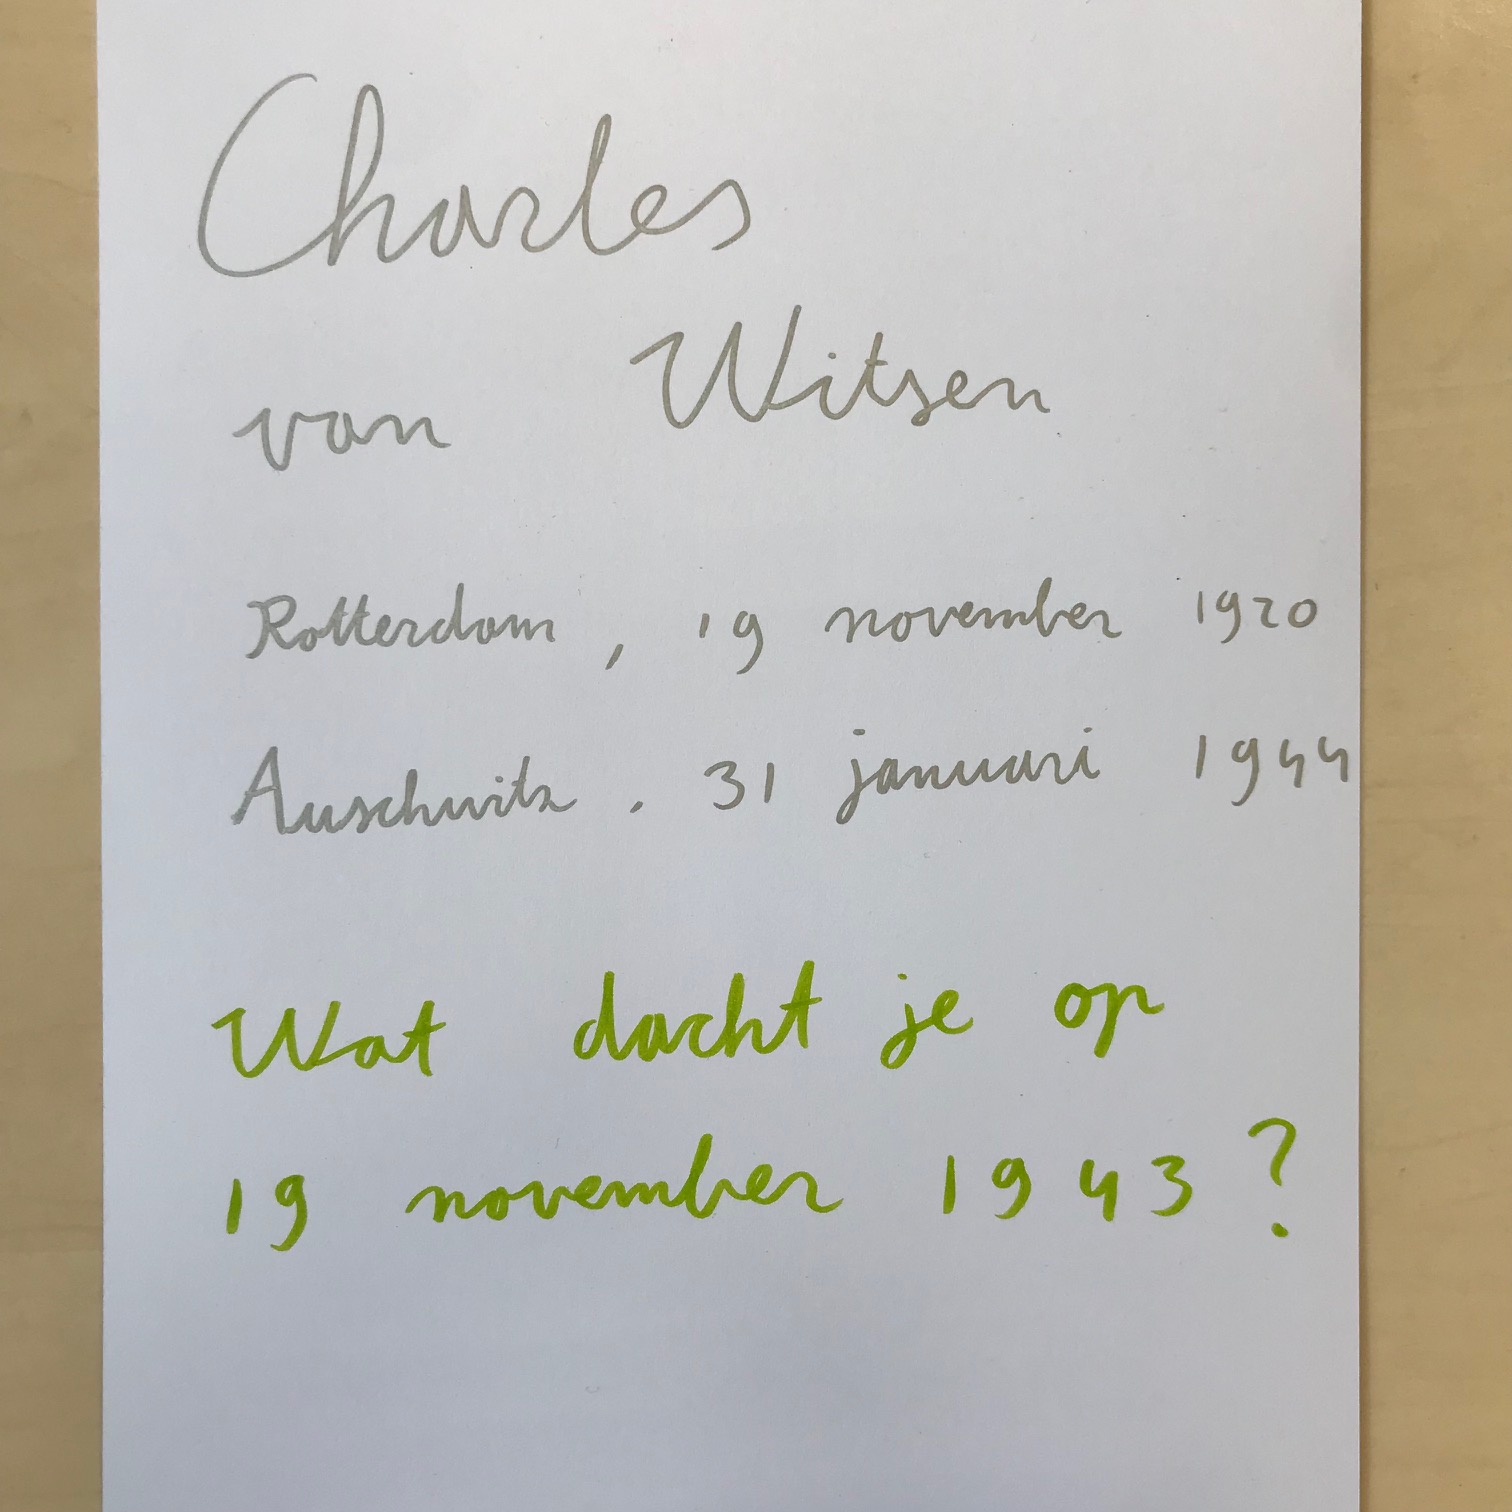 Charles
van Witsen
Rotterdam, 19 november 1920
Auschwitz. 31 januari 1944
Wat dacht je op
19 november 1943?